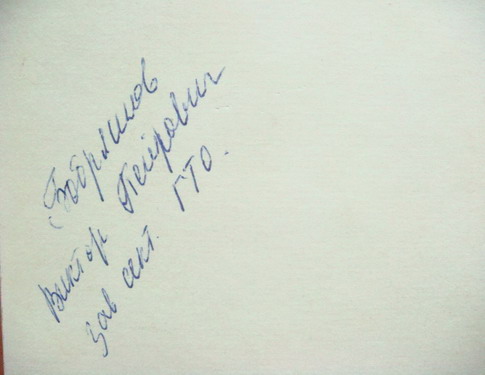 Виктор Петрович
Зав сект. ГТО.